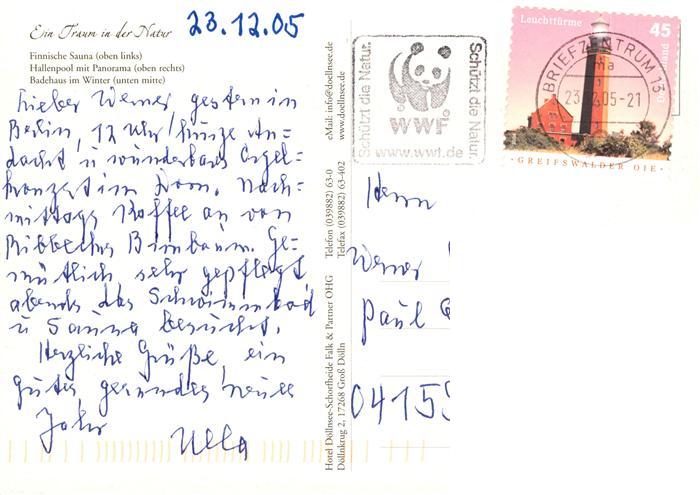 Ein Traum in der Natur
23.12.05
Finnische Sauna (oben links)
Hallenpool mit Panorama (oben rechts)
Badehaus im Winter (unten mitte)
Lieber Werner, gestern in
Berlin, 12 Uhr kurze An=
dacht u wunderbares Orgel=
konzert im Dom. Nach=
mittags Kaffee an von
Ribbecks Birnbaum. Ge=
mütlich sehr gepflegt
abends das Schwimmbad
u Sauna besucht.
Herzliche Grüße, ein
gutes, gesundes neues
Jahr
Ulla
eMail: info@doellnsee.de
www.doellnsee.de
Telefon (039882) 63-0
Telefax (039882) 63-402
Hotel Döllnsee-Schorfheide Falk & Partner OHG
Döllnkrug 2, 17268 Groß Dölln
Schützt die Natur.
WWF
Schützt die Natur.
www.wwf.de
Leuchttürme
45
BRIEFZENTRUM 13
23.12.05-21
GREIFSWALDER OIE
Herrn
Werner
Paul
0415